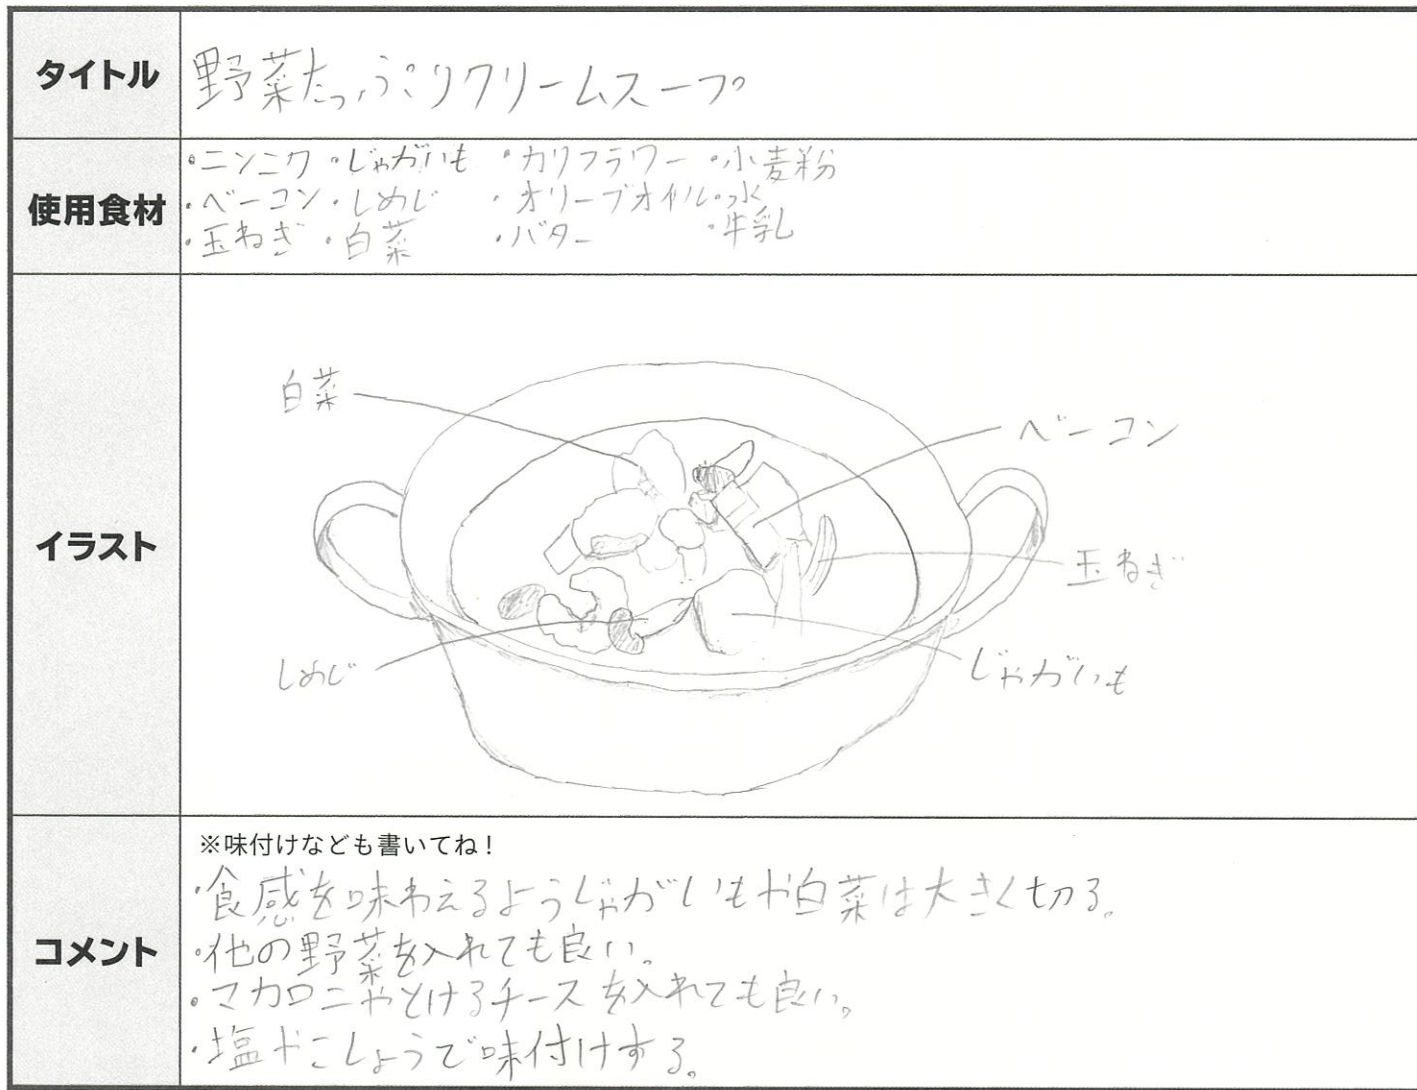 タイトル
野菜たっぷりクリームスープ
使用食材
・ニンニク ・じゃがいも ・カリフラワー ・小麦粉
・ベーコン ・しめじ ・オリーブオイル ・水
・玉ねぎ ・白菜 ・バター ・牛乳
イラスト
白菜
ベーコン
玉ねぎ
しめじ
じゃがいも
コメント
※味付けなども書いてね!
・食感を味わえるようじゃがいもや白菜は大きく切る。
・他の野菜を入れても良い。
・マカロニやとけるチースを入れても良い。
・塩やこしょうで味付けする。